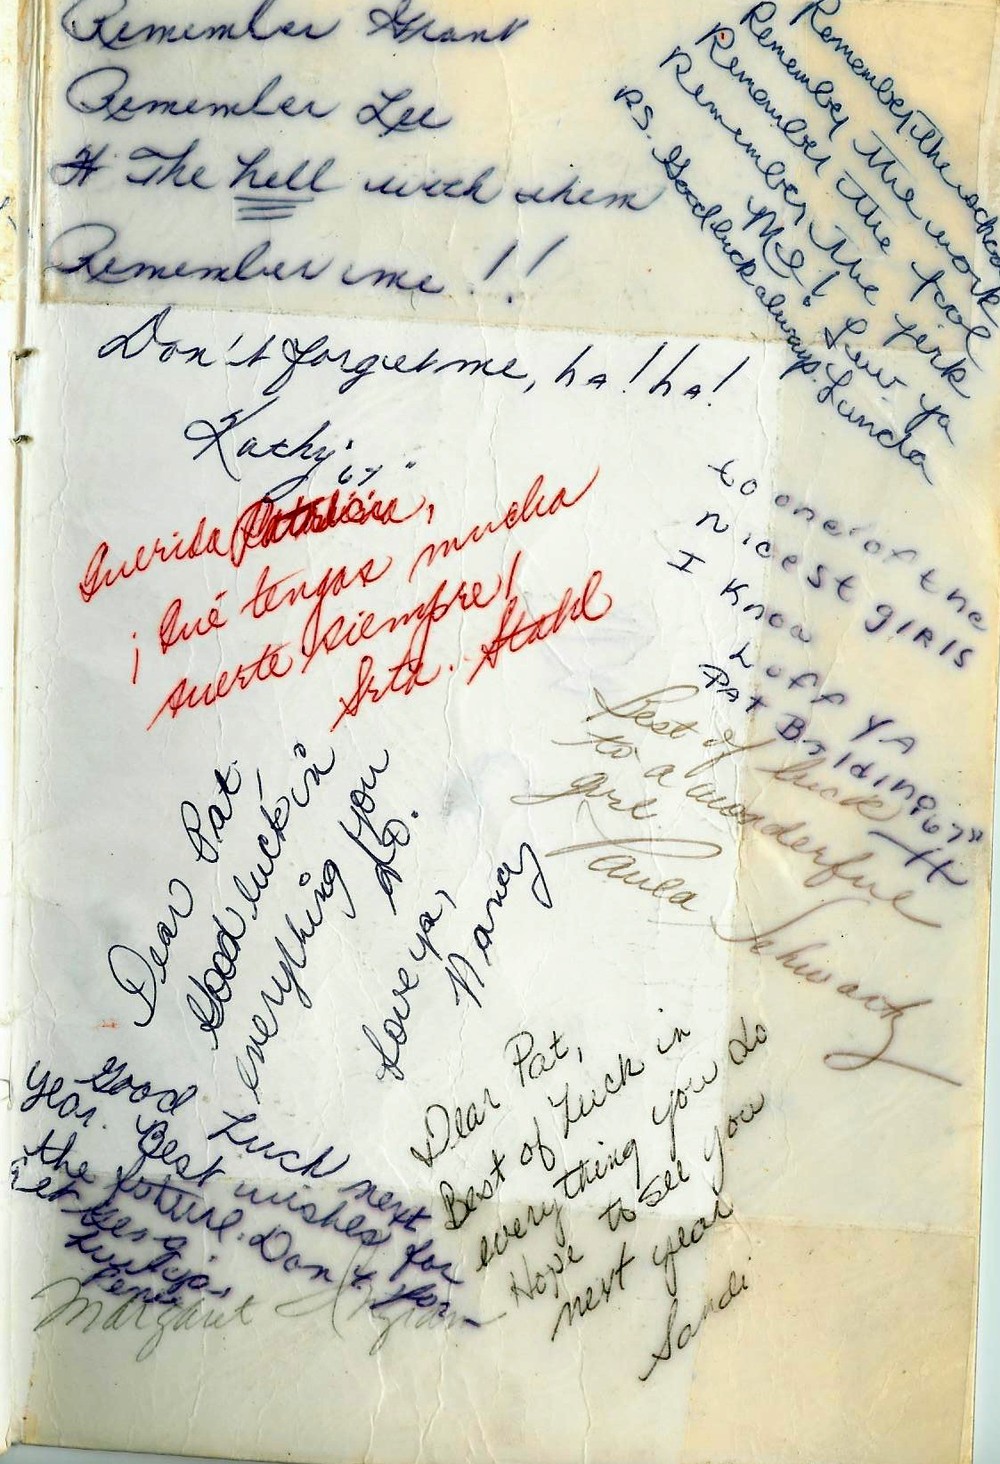 Remember Grant
Remember Lee
The hell with them
Remember me !!
Don't forget me, ha! ha!
Kathy
"67"
Remember the
Remember the work
Remember the fool
Remember the jerk
ME! Luv ya
P.S. Good luck always. Lunda
Querida
¡ Qué tengas mucha
suerte siempre!
Srta. Stahl
to one of the
nicest giRls
I Know
Loff YA
PAt Bolding "67"
Best of luck
to a wonderful
girl.
Paula Schwartz
Dear Pat,
Good luck in
everything you
do.
Love ya,
Nancy
Good Luck next
year. Best wishes for
the future. Don't for-
get
Luv ya,
Margaret
Dear Pat,
Best of Luck in
everything you do
Hope to see you
next year
Sandi